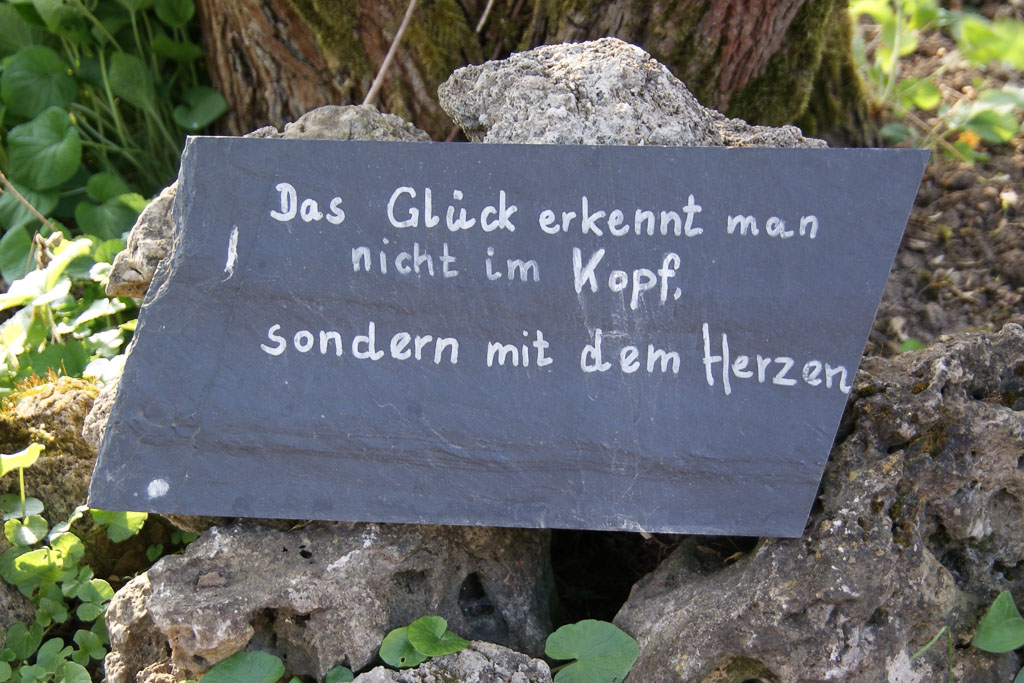 Das Glück erkennt man
nicht im Kopf,
sondern mit dem Herzen